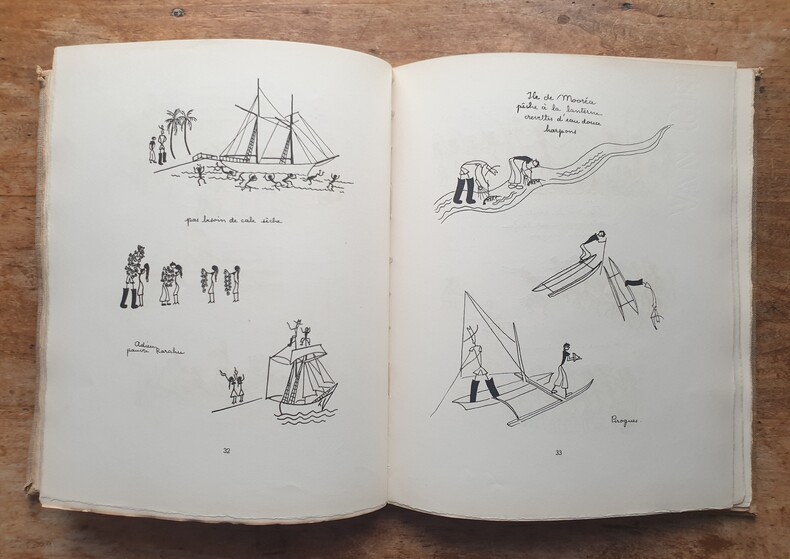 pas besoin de cale sèche
Adieu
pauvre Rarahu
32
Ile de Mooréa
pêche à la lanterne
crevettes d'eau douce
harpons
Pirogues
33